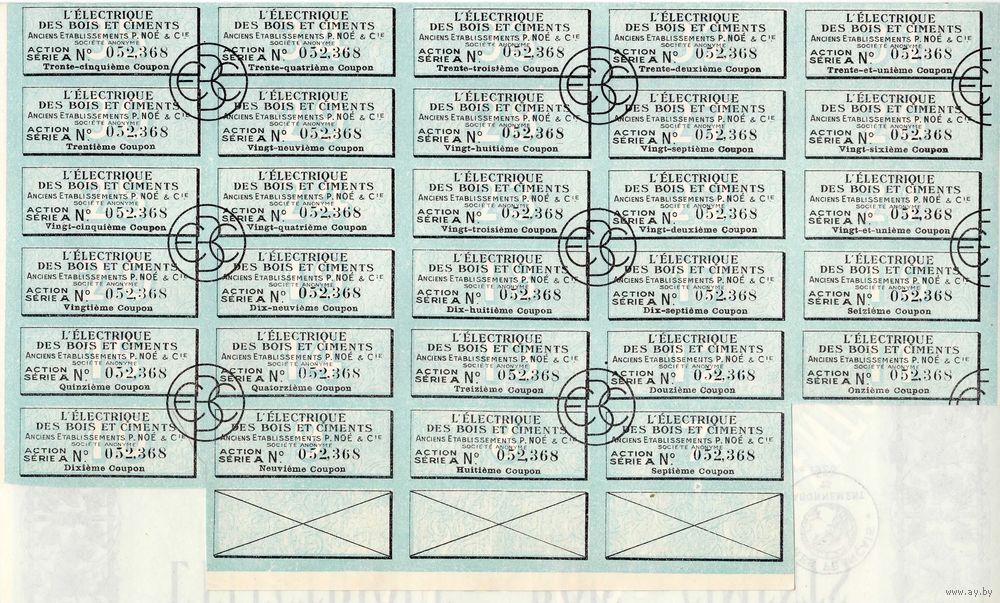 L'ÉLECTRIQUE
DES BOIS ET CIMENTS
ANCIENS ETABLISSEMENTS P. NOÉ & CIE
SOCIÉTÉ ANONYME
ACTION
SÉRIE A N° 052,368
Trente-cinquième Coupon
L'ÉLECTRIQUE
DES BOIS ET CIMENTS
ANCIENS ETABLISSEMENTS P. NOÉ & CIE
SOCIÉTÉ ANONYME
ACTION
SÉRIE A N° 052,368
Trente-quatrième Coupon
L'ÉLECTRIQUE
DES BOIS ET CIMENTS
ANCIENS ETABLISSEMENTS P. NOÉ & CIE
SOCIÉTÉ ANONYME
ACTION
SÉRIE A N° 052,368
Trente-troisième Coupon
L'ÉLECTRIQUE
DES BOIS ET CIMENTS
ANCIENS ETABLISSEMENTS P. NOÉ & CIE
SOCIÉTÉ ANONYME
ACTION
SÉRIE A N° 052,368
Trente-deuxième Coupon
L'ÉLECTRIQUE
DES BOIS ET CIMENTS
ANCIENS ETABLISSEMENTS P. NOÉ & CIE
SOCIÉTÉ ANONYME
ACTION
SÉRIE A N° 052,368
Trente-et-unième Coupon
L'ÉLECTRIQUE
DES BOIS ET CIMENTS
ANCIENS ETABLISSEMENTS P. NOÉ & CIE
SOCIÉTÉ ANONYME
ACTION
SÉRIE A N° 052,368
Trentième Coupon
L'ÉLECTRIQUE
DES BOIS ET CIMENTS
ANCIENS ETABLISSEMENTS P. NOÉ & CIE
SOCIÉTÉ ANONYME
ACTION
SÉRIE A N° 052,368
Vingt-neuvième Coupon
L'ÉLECTRIQUE
DES BOIS ET CIMENTS
ANCIENS ETABLISSEMENTS P. NOÉ & CIE
SOCIÉTÉ ANONYME
ACTION
SÉRIE A N° 052,368
Vingt-huitième Coupon
L'ÉLECTRIQUE
DES BOIS ET CIMENTS
ANCIENS ETABLISSEMENTS P. NOÉ & CIE
SOCIÉTÉ ANONYME
ACTION
SÉRIE A N° 052,368
Vingt-septième Coupon
L'ÉLECTRIQUE
DES BOIS ET CIMENTS
ANCIENS ETABLISSEMENTS P. NOÉ & CIE
SOCIÉTÉ ANONYME
ACTION
SÉRIE A N° 052,368
Vingt-sixième Coupon
L'ÉLECTRIQUE
DES BOIS ET CIMENTS
ANCIENS ETABLISSEMENTS P. NOÉ & CIE
SOCIÉTÉ ANONYME
ACTION
SÉRIE A N° 052,368
Vingt-cinquième Coupon
L'ÉLECTRIQUE
DES BOIS ET CIMENTS
ANCIENS ETABLISSEMENTS P. NOÉ & CIE
SOCIÉTÉ ANONYME
ACTION
SÉRIE A N° 052,368
Vingt-quatrième Coupon
L'ÉLECTRIQUE
DES BOIS ET CIMENTS
ANCIENS ETABLISSEMENTS P. NOÉ & CIE
SOCIÉTÉ ANONYME
ACTION
SÉRIE A N° 052,368
Vingt-troisième Coupon
L'ÉLECTRIQUE
DES BOIS ET CIMENTS
ANCIENS ETABLISSEMENTS P. NOÉ & CIE
SOCIÉTÉ ANONYME
ACTION
SÉRIE A N° 052,368
Vingt-deuxième Coupon
L'ÉLECTRIQUE
DES BOIS ET CIMENTS
ANCIENS ETABLISSEMENTS P. NOÉ & CIE
SOCIÉTÉ ANONYME
ACTION
SÉRIE A N° 052,368
Vingt-et-unième Coupon
L'ÉLECTRIQUE
DES BOIS ET CIMENTS
ANCIENS ETABLISSEMENTS P. NOÉ & CIE
SOCIÉTÉ ANONYME
ACTION
SÉRIE A N° 052,368
Vingtième Coupon
L'ÉLECTRIQUE
DES BOIS ET CIMENTS
ANCIENS ETABLISSEMENTS P. NOÉ & CIE
SOCIÉTÉ ANONYME
ACTION
SÉRIE A N° 052,368
Dix-neuvième Coupon
L'ÉLECTRIQUE
DES BOIS ET CIMENTS
ANCIENS ETABLISSEMENTS P. NOÉ & CIE
SOCIÉTÉ ANONYME
ACTION
SÉRIE A N° 052,368
Dix-huitième Coupon
L'ÉLECTRIQUE
DES BOIS ET CIMENTS
ANCIENS ETABLISSEMENTS P. NOÉ & CIE
SOCIÉTÉ ANONYME
ACTION
SÉRIE A N° 052,368
Dix-septième Coupon
L'ÉLECTRIQUE
DES BOIS ET CIMENTS
ANCIENS ETABLISSEMENTS P. NOÉ & CIE
SOCIÉTÉ ANONYME
ACTION
SÉRIE A N° 052,368
Seizième Coupon
L'ÉLECTRIQUE
DES BOIS ET CIMENTS
ANCIENS ETABLISSEMENTS P. NOÉ & CIE
SOCIÉTÉ ANONYME
ACTION
SÉRIE A N° 052,368
Quinzième Coupon
L'ÉLECTRIQUE
DES BOIS ET CIMENTS
ANCIENS ETABLISSEMENTS P. NOÉ & CIE
SOCIÉTÉ ANONYME
ACTION
SÉRIE A N° 052,368
Quatorzième Coupon
L'ÉLECTRIQUE
DES BOIS ET CIMENTS
ANCIENS ETABLISSEMENTS P. NOÉ & CIE
SOCIÉTÉ ANONYME
ACTION
SÉRIE A N° 052,368
Treizième Coupon
L'ÉLECTRIQUE
DES BOIS ET CIMENTS
ANCIENS ETABLISSEMENTS P. NOÉ & CIE
SOCIÉTÉ ANONYME
ACTION
SÉRIE A N° 052,368
Douzième Coupon
L'ÉLECTRIQUE
DES BOIS ET CIMENTS
ANCIENS ETABLISSEMENTS P. NOÉ & CIE
SOCIÉTÉ ANONYME
ACTION
SÉRIE A N° 052,368
Onzième Coupon
L'ÉLECTRIQUE
DES BOIS ET CIMENTS
ANCIENS ETABLISSEMENTS P. NOÉ & CIE
SOCIÉTÉ ANONYME
ACTION
SÉRIE A N° 052,368
Dixième Coupon
L'ÉLECTRIQUE
DES BOIS ET CIMENTS
ANCIENS ETABLISSEMENTS P. NOÉ & CIE
SOCIÉTÉ ANONYME
ACTION
SÉRIE A N° 052,368
Neuvième Coupon
L'ÉLECTRIQUE
DES BOIS ET CIMENTS
ANCIENS ETABLISSEMENTS P. NOÉ & CIE
SOCIÉTÉ ANONYME
ACTION
SÉRIE A N° 052,368
Huitième Coupon
L'ÉLECTRIQUE
DES BOIS ET CIMENTS
ANCIENS ETABLISSEMENTS P. NOÉ & CIE
SOCIÉTÉ ANONYME
ACTION
SÉRIE A N° 052,368
Septième Coupon
www.ay.by